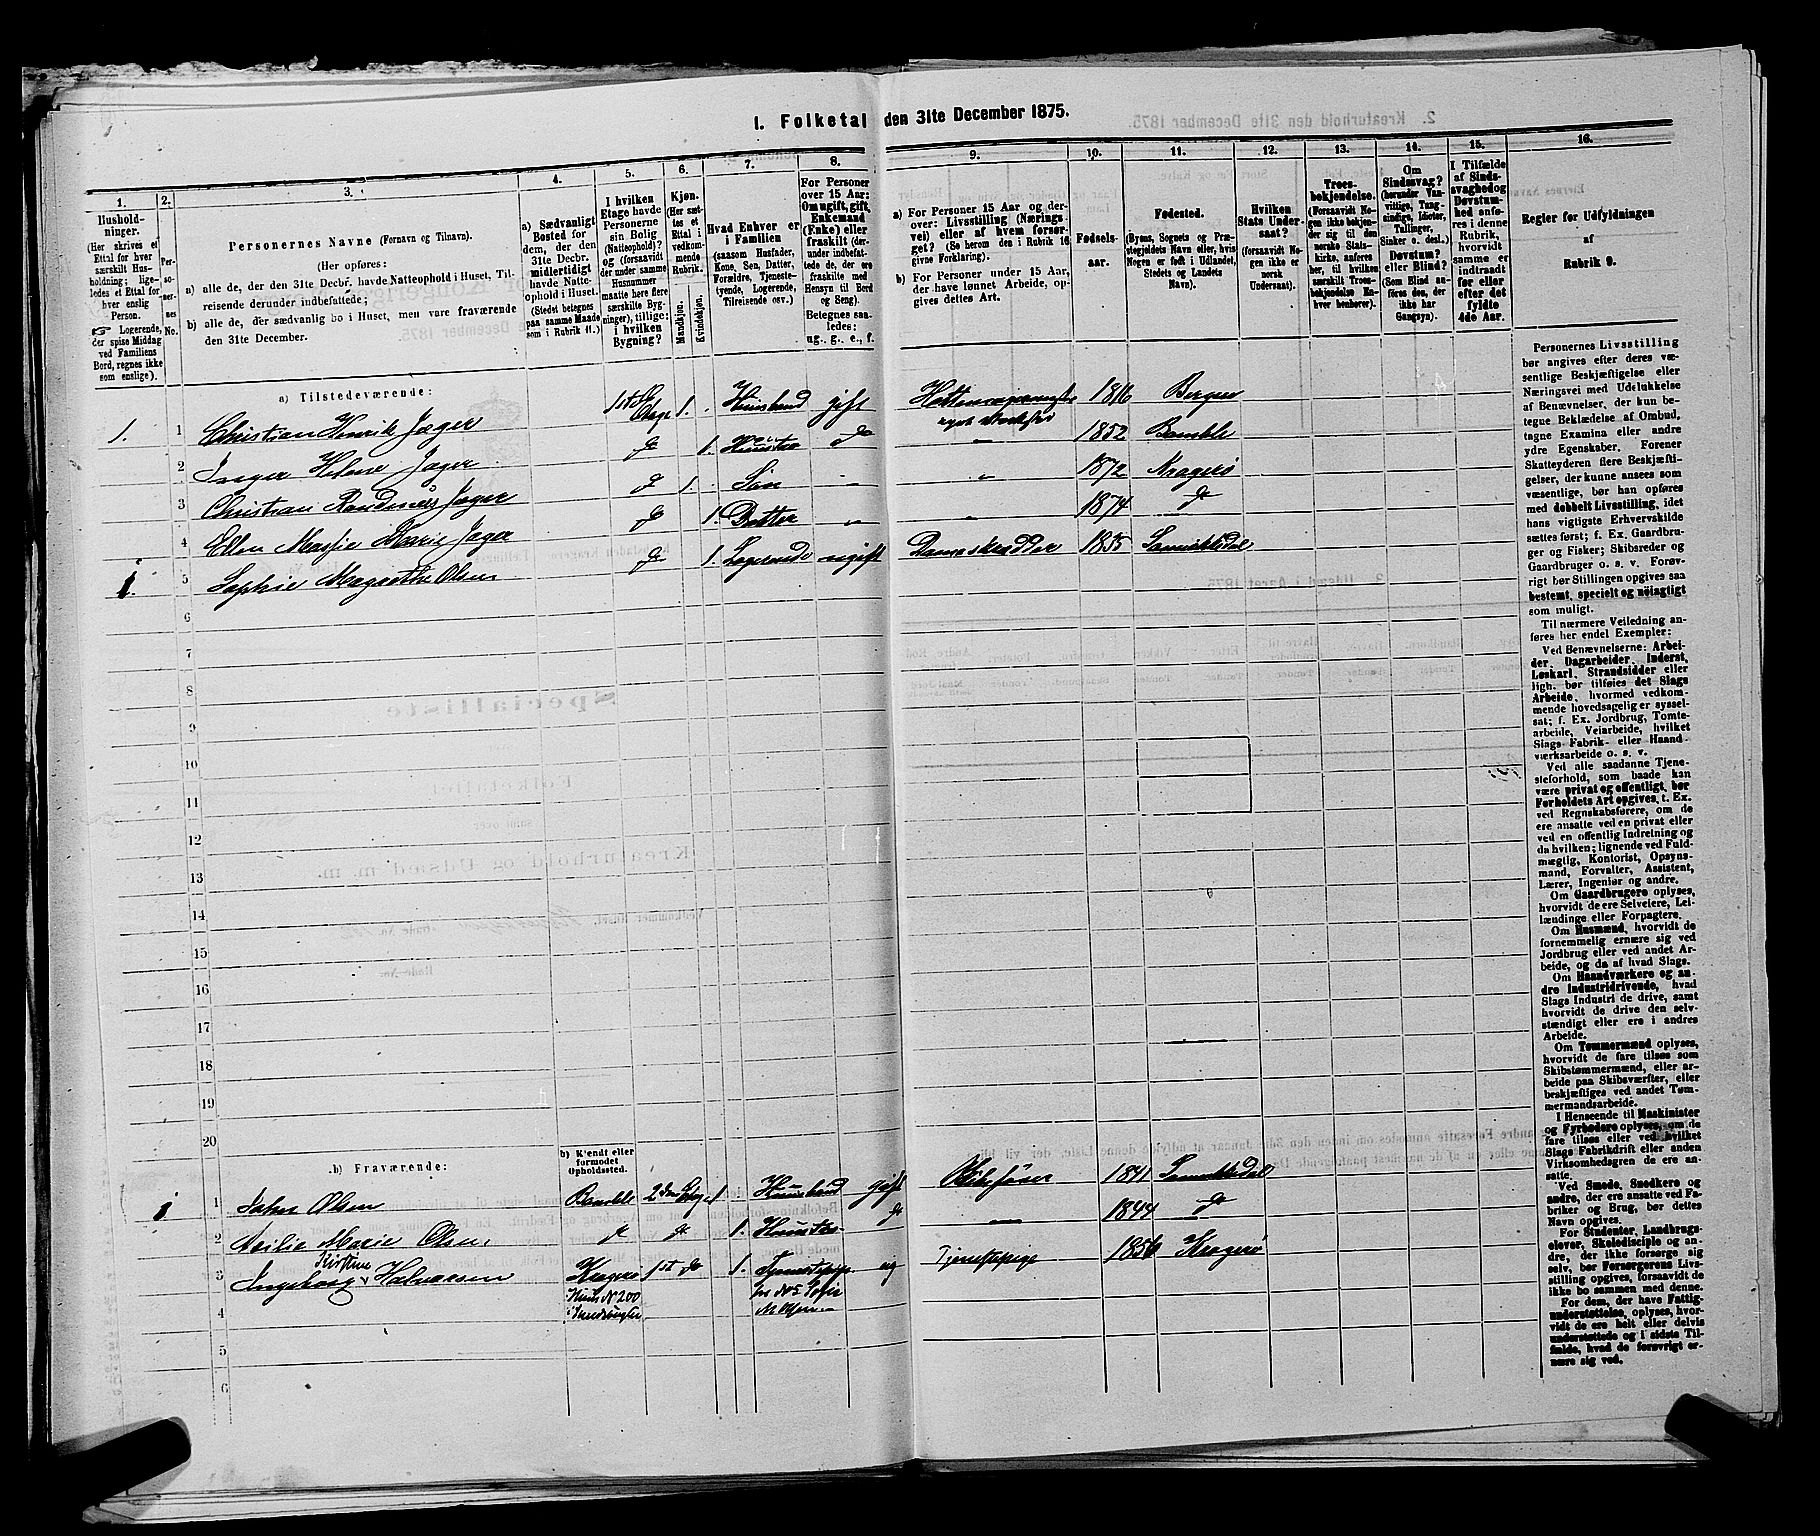 1. Folketal den 31te December 1875.
1.
Husholdninger.
(Her skrives et Ettal for hver særskilt Husholdning; ligeledes et Ettal for hver enslig Person.
Logerende, der spise Middag ved Familiens Bord, regnes ikke som enslige).
2.
Personernes No.
3.
Personernes Navne (Fornavn og Tilnavn).
(Her opføres:
a) alle de, der den 31te Decbr. havde Natteophold i Huset, Tilreisende derunder indbefattede;
b) alle de, der sædvanlig bo i Huset, men vare fraværende den 31te December.
4.
a) Sædvanligt Bosted for dem, der den 31te Decbr. midlertidigt havde Natteophold i Huset.
(Stedet betegnes paa samme Maade som i Rubrik 11.)
5.
I hvilken Etage havde Personerne sin Bolig (Natteophold)? og (forsaavidt der under samme Husnummer maatte høre flere særskilte Bygninger), tillige: i hvilken Bygning?
6.
Kjøn.
(Her sættes et Ettal i vedkommende Rubrik.
Mandkjøn.
Kvindekjøn.
7.
Hvad Enhver er i Familien
(saasom Husfader, Kone, Søn, Datter, Forældre, Tjenestetyende, Logerende, Tilreisende osv.)
8.
For Personer over 15 Aar: Om ugift, gift, Enkemand (Enke) eller fraskilt (derunder indbefattede de, der ere fraskilte med Hensyn til Bord og Seng).
Betegnes saaledes: ug., g., e., f.
9.
a) For Personer 15 Aar og derover: Livsstilling (Næringsvei) eller af hvem forsørget? (Se herom den i Rubrik 16 givne Forklaring).
b) For Personer under 15 Aar, der have lønnet Arbeide, opgives dettes Art.
10.
Fødselsaar.
11.
Fødested.
(Byens, Sognets og Præstegjeldets Navn eller, hvis Nogen er født i Udlandet, Stedets og Landets Navn).
12.
Hvilken Stats Undersaat?
(forsaavidt Nogen ikke er norsk Undersaat).
13.
Troesbekjendelse.
(Forsaavidt Nogen ikke bekjender sig til den norske Statskirke, anføres her, til hvilken Troesbekjendelse Enhver henhører).
14.
Om Sindssvag? (herunder Vanvittige, Tungsindige, Idioter, Tullinger, Sinker o. desl.)
Døvstum? eller Blind?
(Som Blind anføres den, der ikke har Gangsyn).
15.
I Tilfælde af Sindssvaghed og Døvstumhed anføres i denne Rubrik, hvorvidt samme er indtraadt før eller efter det fyldte 4de Aar.
16.
Regler for Udfyldningen af Rubrik 9.
a) Tilstedeværende:
1. 1 Christian Henrik Jæger 1ste Etage 1. Huusbond gift 1816 Bergen
2 Inger Helene Jæger do 1. Huustro do " 1852 Bamble
3 Christian Jæger do 1. Søn " " 1872 Kragerø
4 Ellen Marie Jæger do 1. Datter " " 1874 do
1. 5 Sophie Magrethe Olsen do 1. Logerende ugift Dameskrædder 1835 Sannikedal
6
7
8
9
10
11
12
13
14
15
16
17
18
19
20
b) Fraværende:
b) Kjendt eller formodet Opholdssted.
1 1 Olsen Bamble 2den Etage 1 Huusbond gift 1841 Sannikedal
2 Marie Olsen do do 1. Huustro do " 1844 do
3 Ingeborg Kirstine Halvorsen Kragerø 1st do 1. Tjenestepige ug Tjenestepige 1856 Kragerø
Huus No 200
4
5
6
Personernes Livsstilling bør angives efter deres væsentlige Beskjæftigelse eller Næringsvei med Udelukkelse af Benævnelser, der kun betegne Beklædelse af Ombud, tagne Examina eller andre ydre Egenskaber. Forener Skatteyderen flere Beskjæftigelser, der kunne ansees som væsentlige, bør han opføres med dobbelt Livsstilling, idet hans vigtigste Erhvervskilde sættes først; f. Ex. Gaardbruger og Fisker; Skibsreder og Gaardbruger o. s. v. Forøvrigt bør Stillingen opgives saa bestemt, specielt og nøiagtigt som muligt.
Til nærmere Veiledning anføres her endel Exempler:
Ved Benævnelserne: Arbeider, Dagarbeider, Inderst, Løskarl, Strandsidder eller ligh. bør tilføies det Slags Arbeide, hvormed vedkommende hovedsagelig er sysselsat; f. Ex. Jordbrug, Tomtearbeide, Veiarbeide, hvilket Slags Fabrik- eller Haandværksarbeide o. s. v.
Ved alle saadanne Tjenesteforhold, som baade kan være privat og offentligt, bør Forholdets Art opgives, t. Ex. ved Regnskabsførere, om de ere ansatte ved en privat eller ved en offentlig Indretning og da hvilken; lignende ved Fuldmægtig, Kontorist, Opsynsmand, Forvalter, Assistent, Lærer, Ingeniør og andre.
Om Gaardbrugere oplyses, hvorvidt de ere Selveiere, Leilændinge eller Forpagtere.
Om Husmænd, hvorvidt de fornemmelig ernære sig ved Jordbrug eller ved andet Arbeide, og da af hvad Slags.
Om Haandværkere og andre Industridrivende, hvad Slags Industri de drive, samt hvorvidt de drive den selvstændigt eller ere i andres Arbeide.
Om Tømmermænd oplyses, hvorvidt de fare tilsøs som Skibstømmermænd, eller arbeide paa Skibsværfter, eller beskjæftiges ved andet Tømmermandsarbeide.
I Henseende til Maskinister og Fyrbødere oplyses, om de fare tilsøs eller ved hvilket Slags Fabrikdrift eller anden Virksomhedsgren de ere ansatte.
Ved Smede, Snedkere og andre, der ere ansatte ved Fabriker og Brug, bør dettes Navn opgives.
For Studenter, Landbrugselever, Skoledisciple og andre, der ikke forsørge sig selv, bør Forsørgerens Livsstilling opgives, forsaavidt de ikke bo sammen med denne.
For dem, der have Fattigunderstøttelse, oplyses, hvorvidt de ere helt eller delvis understøttede og i sidste Tilfælde, hvad de forøvrigt ernære sig ved.